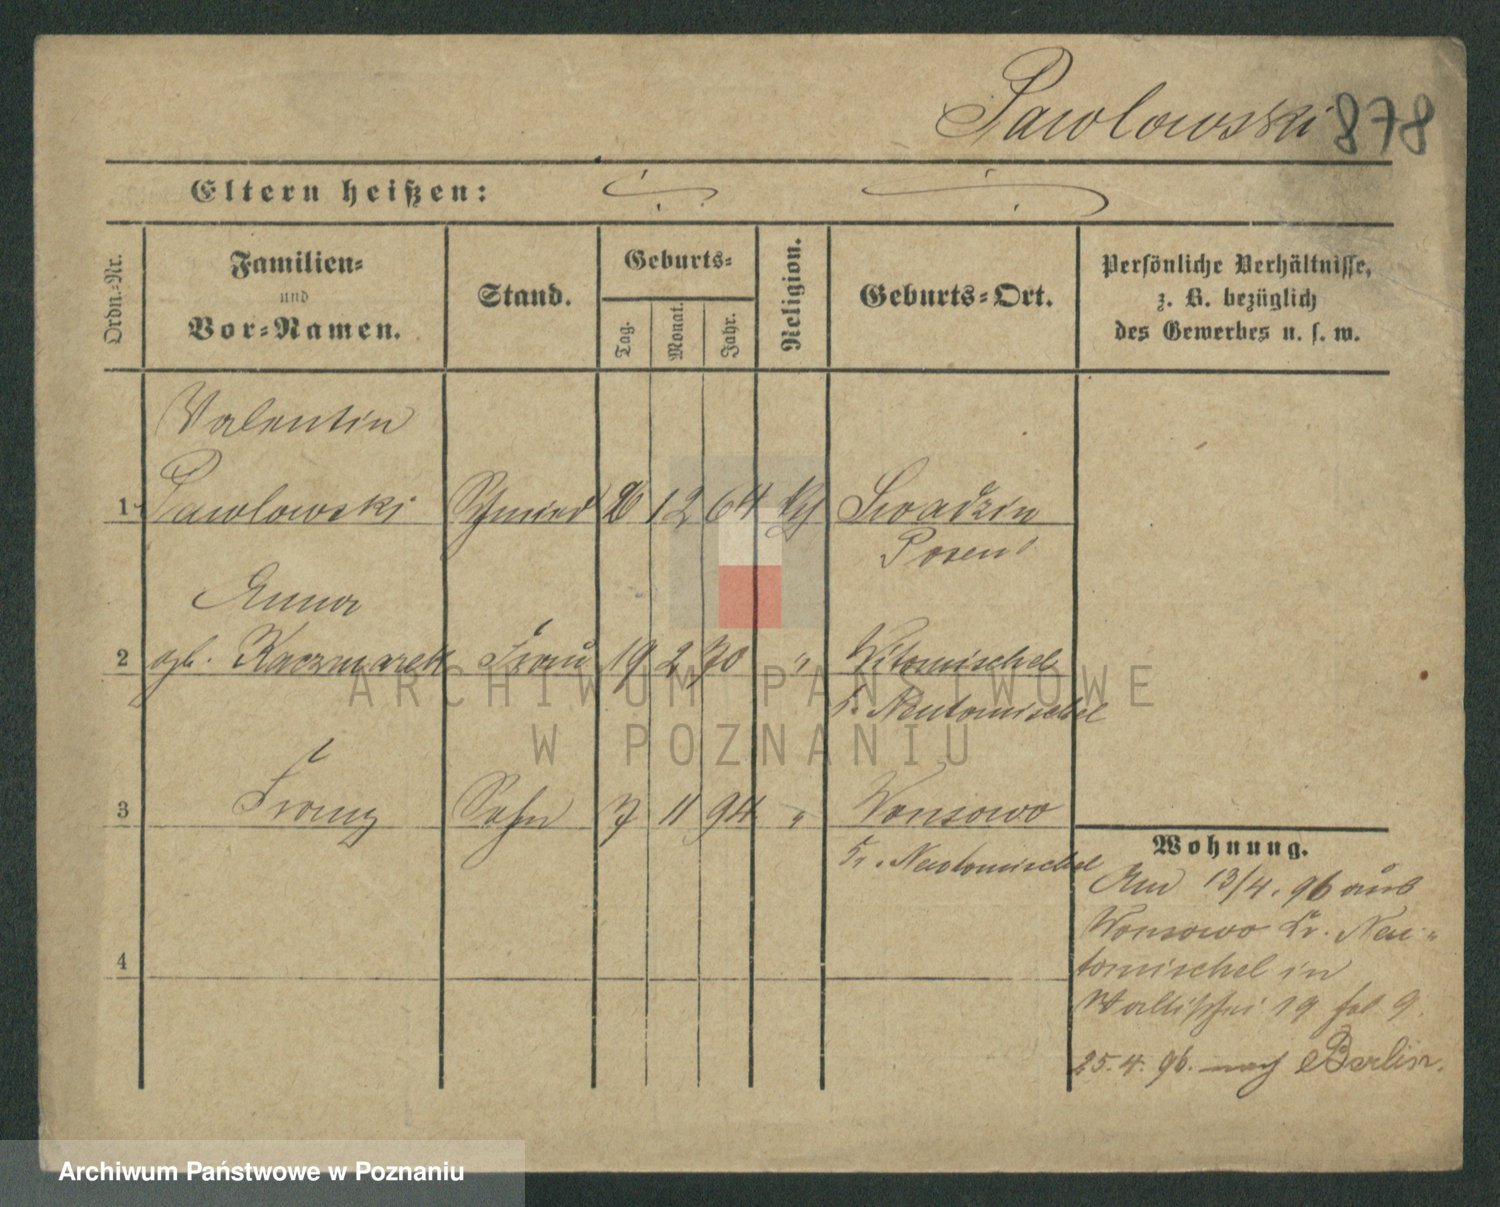 Pawlowski 878
Eltern heißen:
Ordn.-Nr.
Familien-
und
Vor-Namen.
Stand.
Geburts-
Tag.
Monat.
Jahr.
Religion.
Geburts-Ort.
Persönliche Verhältnisse,
z. B. bezüglich
des Gewerbes u. s. w.
Valentin
1 Pawlowski Schmied 12 64 kth Swadzin
Posen
Anna
2 gb. Kaczmarek Frau 19 2 70 " Witomischel
Kr. Neutomischel
3 Franz Sohn 7 11 94 " Wonsowo
Kr. Neutomischel
4
Wohnung.
Am 13/4. 96 aus
Wonsowo Kr. Neu-
tomischel in
Wallischei 19 9.
25. 4. 96. nach Berlin.
ARCHIWUM PAŃSTWOWE
W POZNANIU
Archiwum Państwowe w Poznaniu